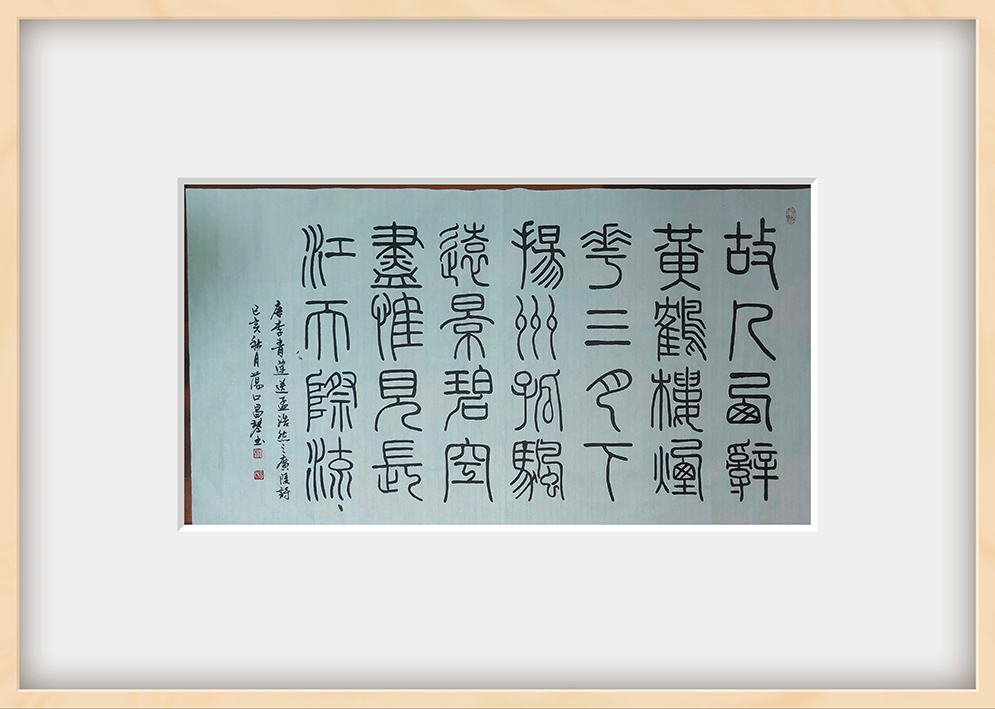 故人西辭
黃鶴樓煙
華三月下
揚州孤颿
遠景碧空
盡惟見長
江天際流
唐李青蓮送孟浩然之廣陵詩
己亥秋月蕩口昌琴书